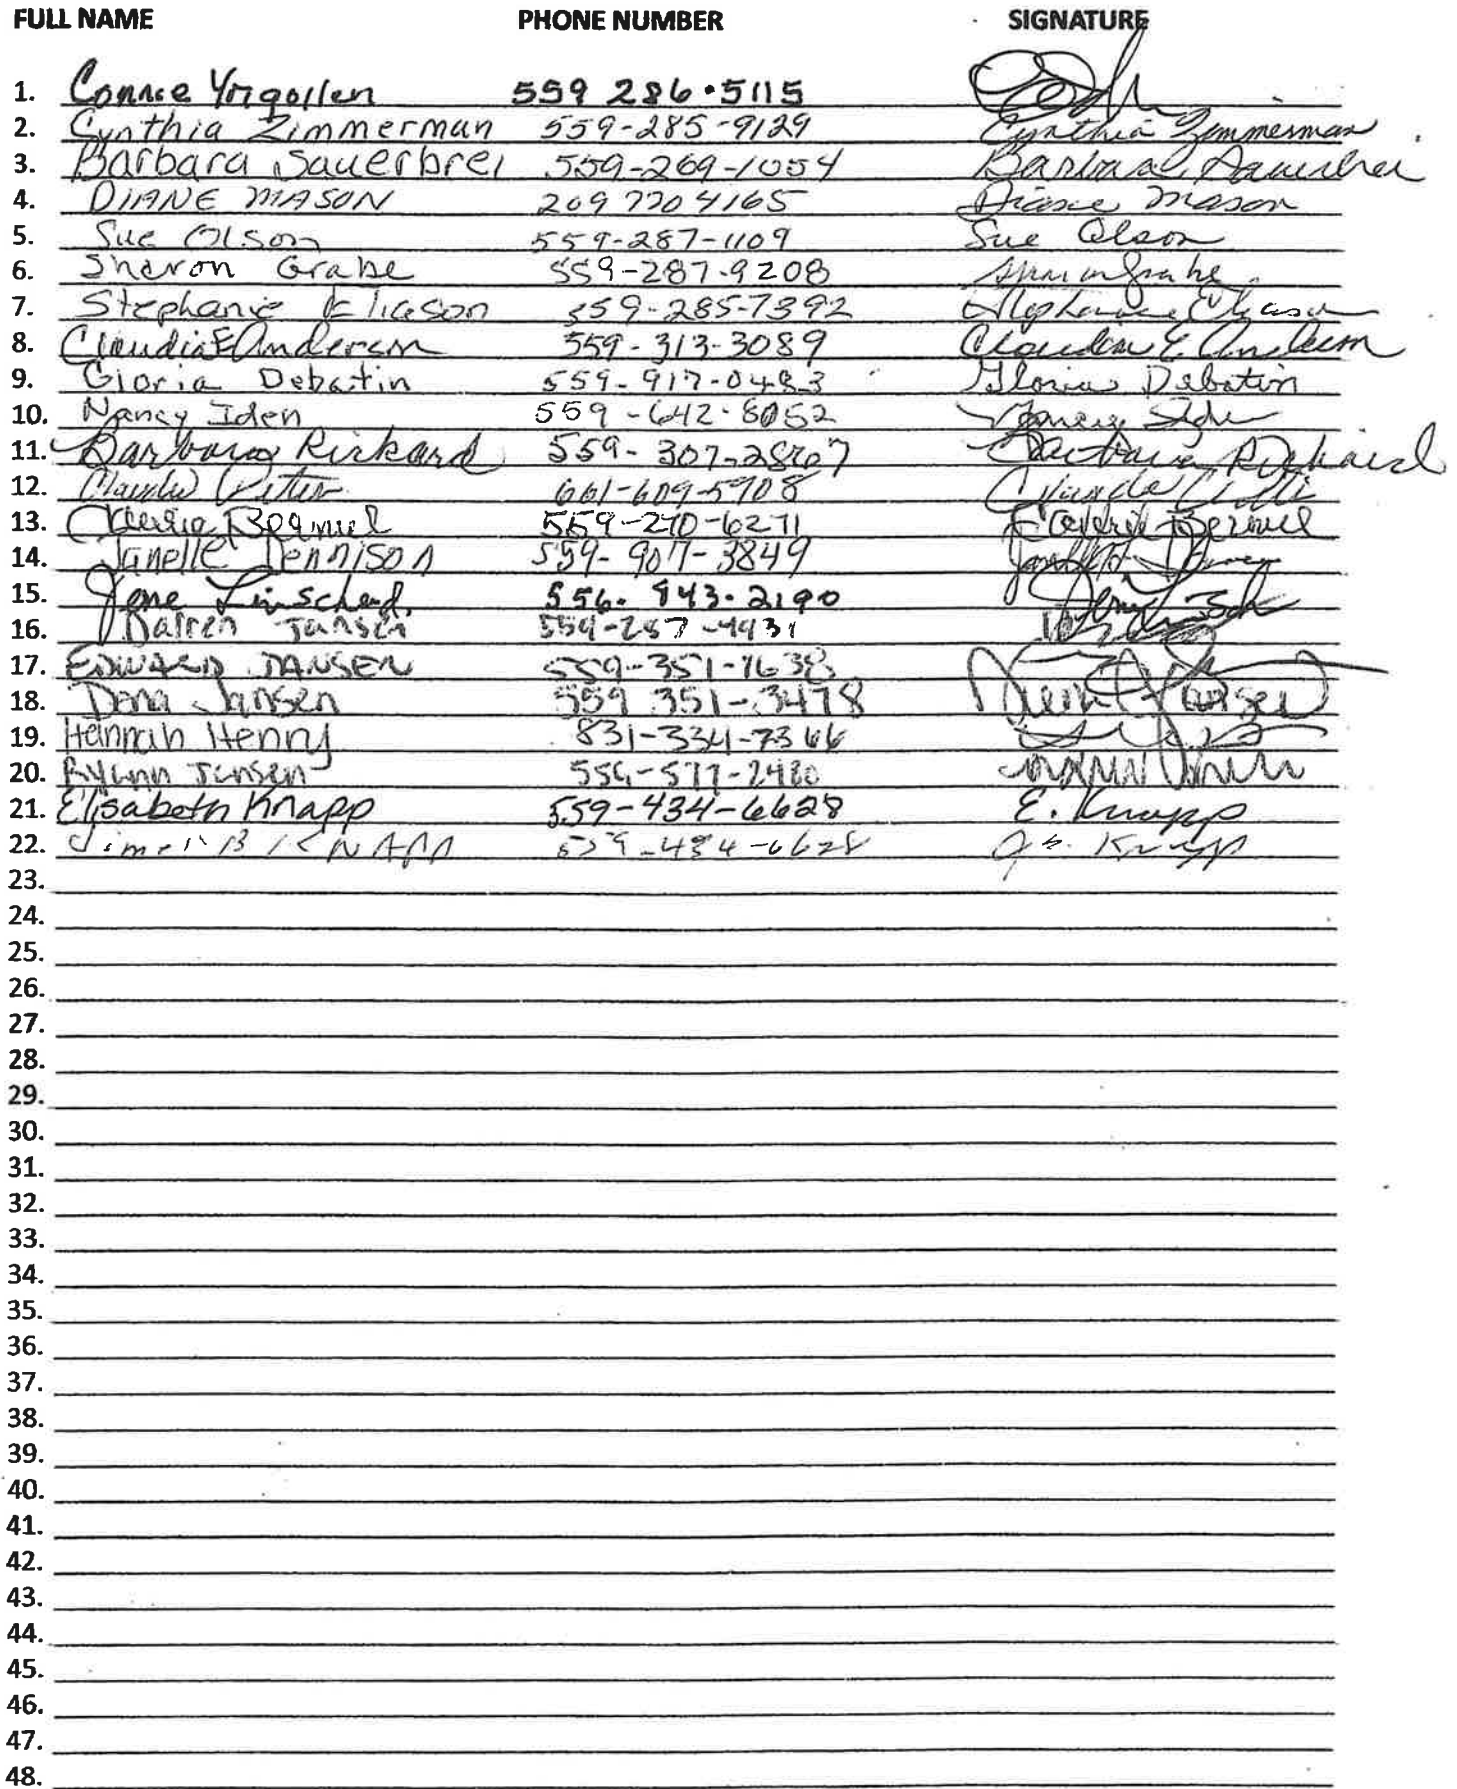 FULL NAME PHONE NUMBER SIGNATURE
1. Connie Yrigollen 559 286.5115
2. Cynthia Zimmerman 559-285-9129 Cynthia Zimmerman
3. Barbara Sauerbrei 559-269-1054 Barbara Sauerbrei
4. DIANE MASON 209 770 4165 Diane Mason
5. Sue Olson 559-287-1109 Sue Olson
6. Sharon Grabe 559-287-9208 Sharon Grabe
7. Stephanie Eliason 559-285-7392 Stephanie Eliason
8. Claudia E Anderson 559-313-3089 Claudia E Anderson
9. Gloria Debatin 559-917-0483 Gloria Debatin
10. Nancy Iden 559-642-8052 Nancy Iden
11. Barbara Rickard 559-307-2867 Barbara Rickard
12. 661-609-5708
13. 559-270-6271
14. Janelle Dennison 559-907-3849
15. Linscheid 556-843-2190
16. Darren Jansen 559-287-4931
17. EDWARD JANSEN 559-351-1638
18. Dena Jansen 559 351-3478 Jansen
19. Hannah Henry 831-334-7366
20. Rylann Jansen 559-577-2480
21. Elisabeth Knapp 559-434-6628 E. Knapp
22. KNAPP 559-434-6628 Knapp
23.
24.
25.
26.
27.
28.
29.
30.
31.
32.
33.
34.
35.
36.
37.
38.
39.
40.
41.
42.
43.
44.
45.
46.
47.
48.